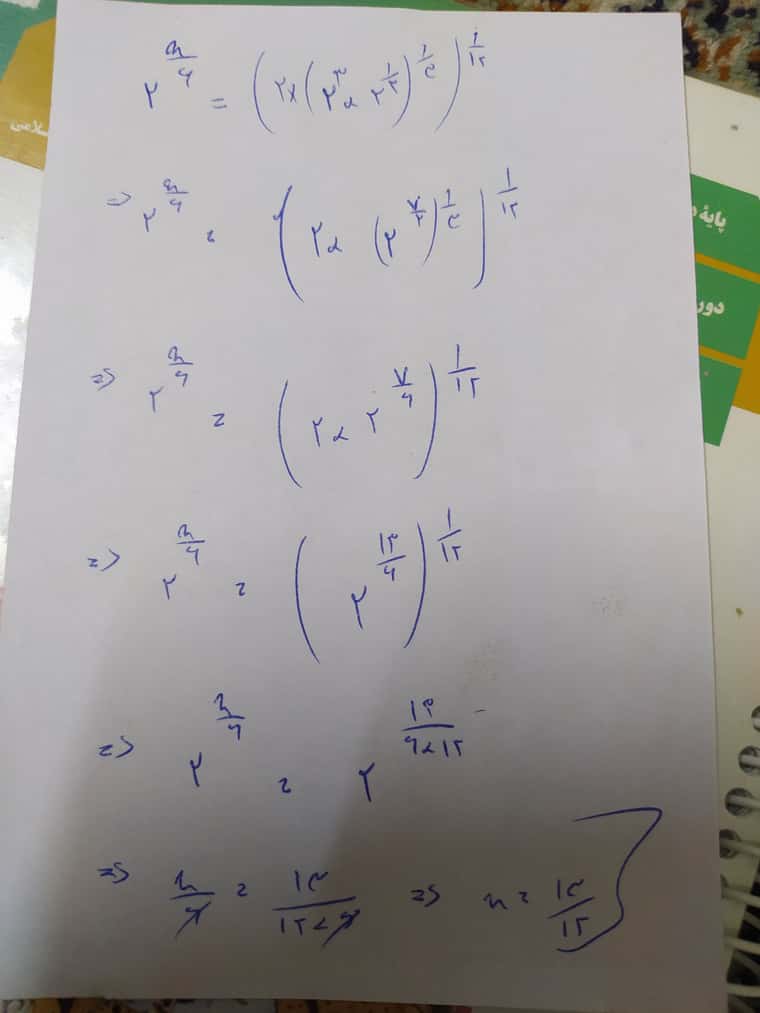 ۲^(n/۶) = (۲×(۲^۳ × ۲^(۱/۲))^(۱/۳))^(۱/۱۲)
=> ۲^(n/۶) = (۲ × (۲^(۷/۲))^(۱/۳))^(۱/۱۲)
=> ۲^(n/۶) = (۲ × ۲^(۷/۶))^(۱/۱۲)
=> ۲^(n/۶) = (۲^(۱۳/۶))^(۱/۱۲)
=> ۲^(n/۶) = ۲^(۱۳/(۶×۱۲))
=> n/۶ = ۱۳/(۱۲×۶) => n = ۱۳/۱۲
پایهٔ
دور